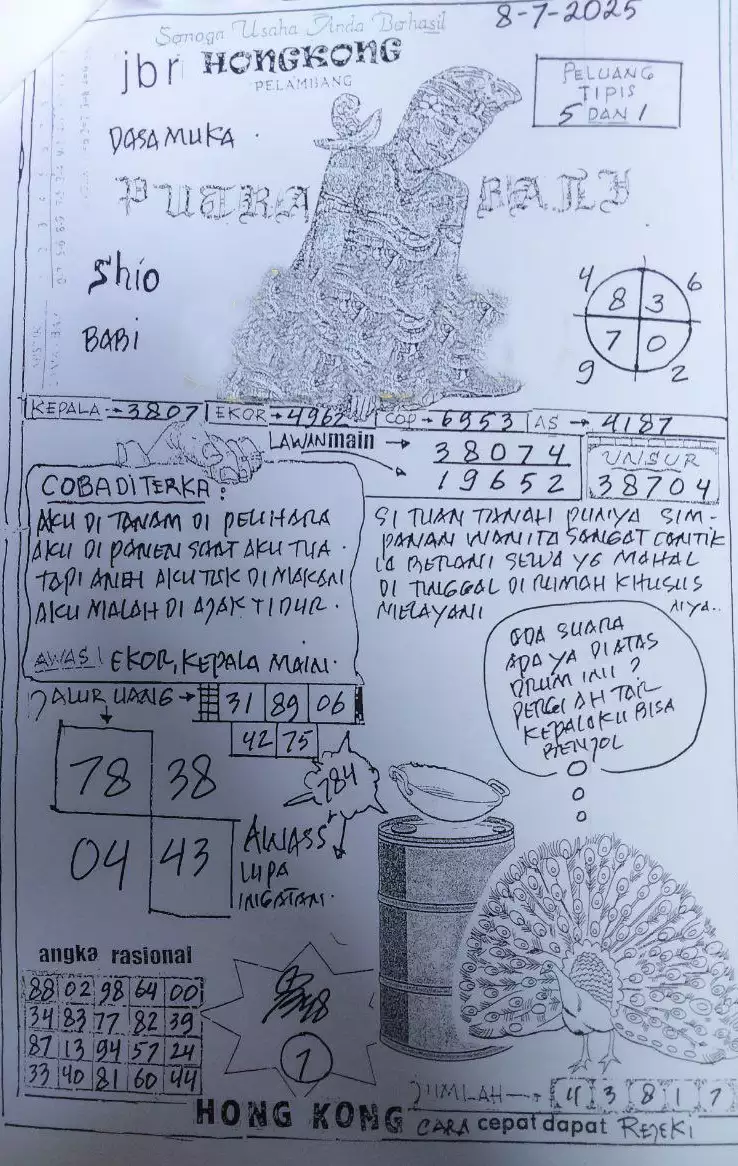 8-7-2025
Semoga Usaha Anda Berhasil
jbr HONGKONG
PELAMBANG
PELUANG
TIPIS
5 DAN 1
DASAMUKA
PUTRA BALI
Shio
BABI
4 6
8 3
7 0
9 2
KEPALA 3807 EKOR 4962 COP 6953 AS 4187
LAWAN main 38074
19652
UNSUR
38704
COBA DITERKA :
AKU DI TANAM DI PELIHARA
AKU DI PANEN SAAT AKU TUA .
TAPI ANEH AKU TDK DI MAKAN
AKU MALAH DI AJAK TIDUR .
AWAS ! EKOR, KEPALA MAIN .
SI TUAN TANAH PUNYA SIM-
PANAN WANITA SANGAT CANTIK
IA BERANI SEWA YG MAHAL
DI TINGGAL DI RUMAH KHUSUS
MELAYANI NYA..
ADA SUARA
APA YA DIATAS
DRUM INI ?
PERGI AH TAR
KEPALAKU BISA
BENJOL
JALUR UANG 31 89 06
42 75
78 38
04 43
784
AWASS
LUPA
INGATAN .
angka rasional
88 02 98 64 00
34 83 77 82 39
87 13 94 57 24
33 40 81 60 44
7
JUMLAH 4 3 8 1 7
HONG KONG CARA cepat dapat REJEKI